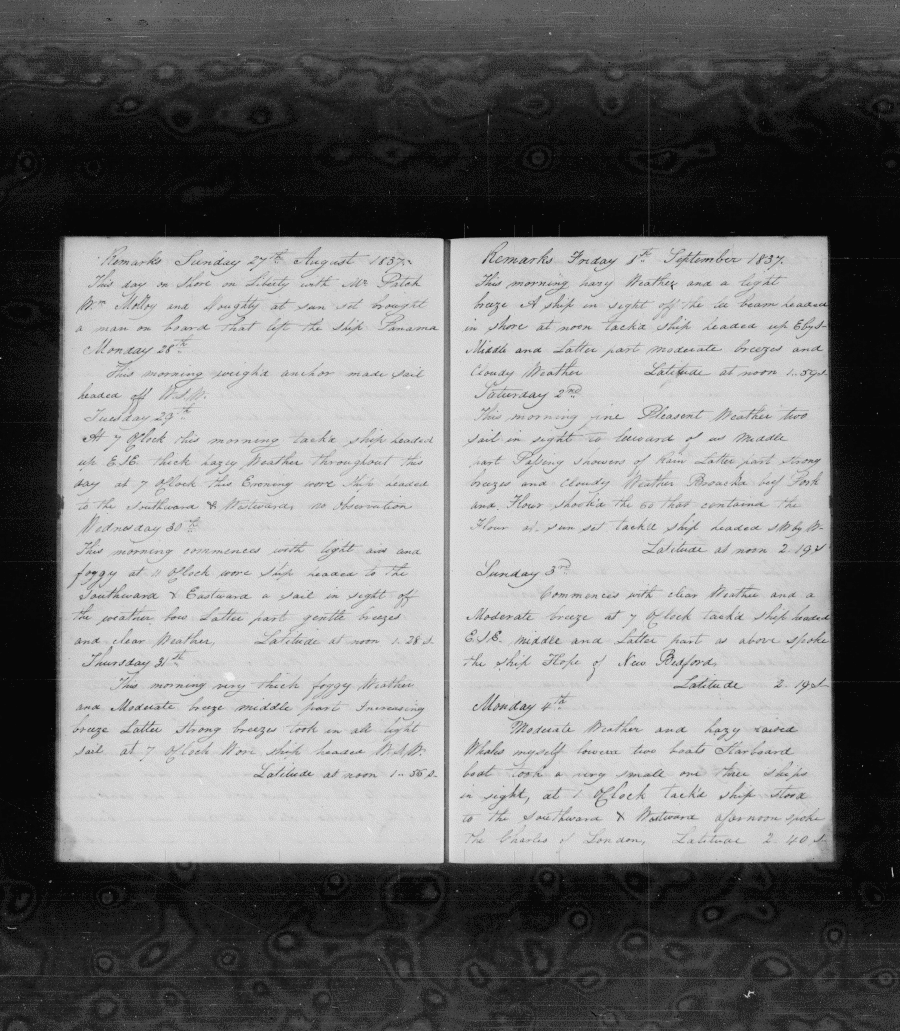 Remarks Sunday 27th August 1837.
This day on shore on Liberty with Mr Patch
Wm McKoy and Doughty at sun set brought
a man on board that left the ship Panama
Monday 28th
This morning weighd anchor made sail
headed off W.S.W.
Tuesday 29th
At 7 OClock this morning tackd ship headed
up E.S.E. thick hazy Weather throughout this
day at 7 OClock this Evening wore ship headed
to the Southward & Westward no observation
Wednesday 30th
This morning commences with light airs and
foggy at 11 OClock wore ship headed to the
Southward & Eastward a sail in sight off
the weather bow Latter part gentle breezes
and clear Weather Latitude at noon 1.28 S.
Thursday 31th
This morning very thick foggy Weather
and Moderate breeze middle part Increasing
breeze Latter strong breezes took in all light
sail at 7 OClock Wore ship headed W.S.W.
Latitude at noon 1.. 56 S.
Remarks Friday 1th September 1837.
This morning hazy Weather and a light
breze A ship in sight off the lee beam headed
in shore at noon tackd ship headed up E by S
Middle and Latter part moderate breezes and
Cloudy Weather Latitude at noon 1..59 S.
Saturday 2nd
This morning fine Pleasent Weather two
sail in sight to leeward of us Middle
part Passing showers of Rain Latter part strong
breezes and Cloudy Weather Broack'd beef Pork
and Flour shook'd the that containd the
Flour at sun set tackd ship headed SW by W
Latitude at noon 2.19 S
Sunday 3rd
Commences with clear Weather and a
Moderate breeze at 7 OClock tackd ship headed
E.S.E. middle and Latter part as above spoke
the ship Hope of New Bedford,
Latitude 2..19 S
Monday 4th
Moderate Weather and hazy raised
Whales myself lowerd two boats Starboard
boat took a very small one three ships
in sight, at 1 OClock tackd ship stood
to the Southward & Westward afternoon spoke
the Charles of London, Latitude 2..40 S.